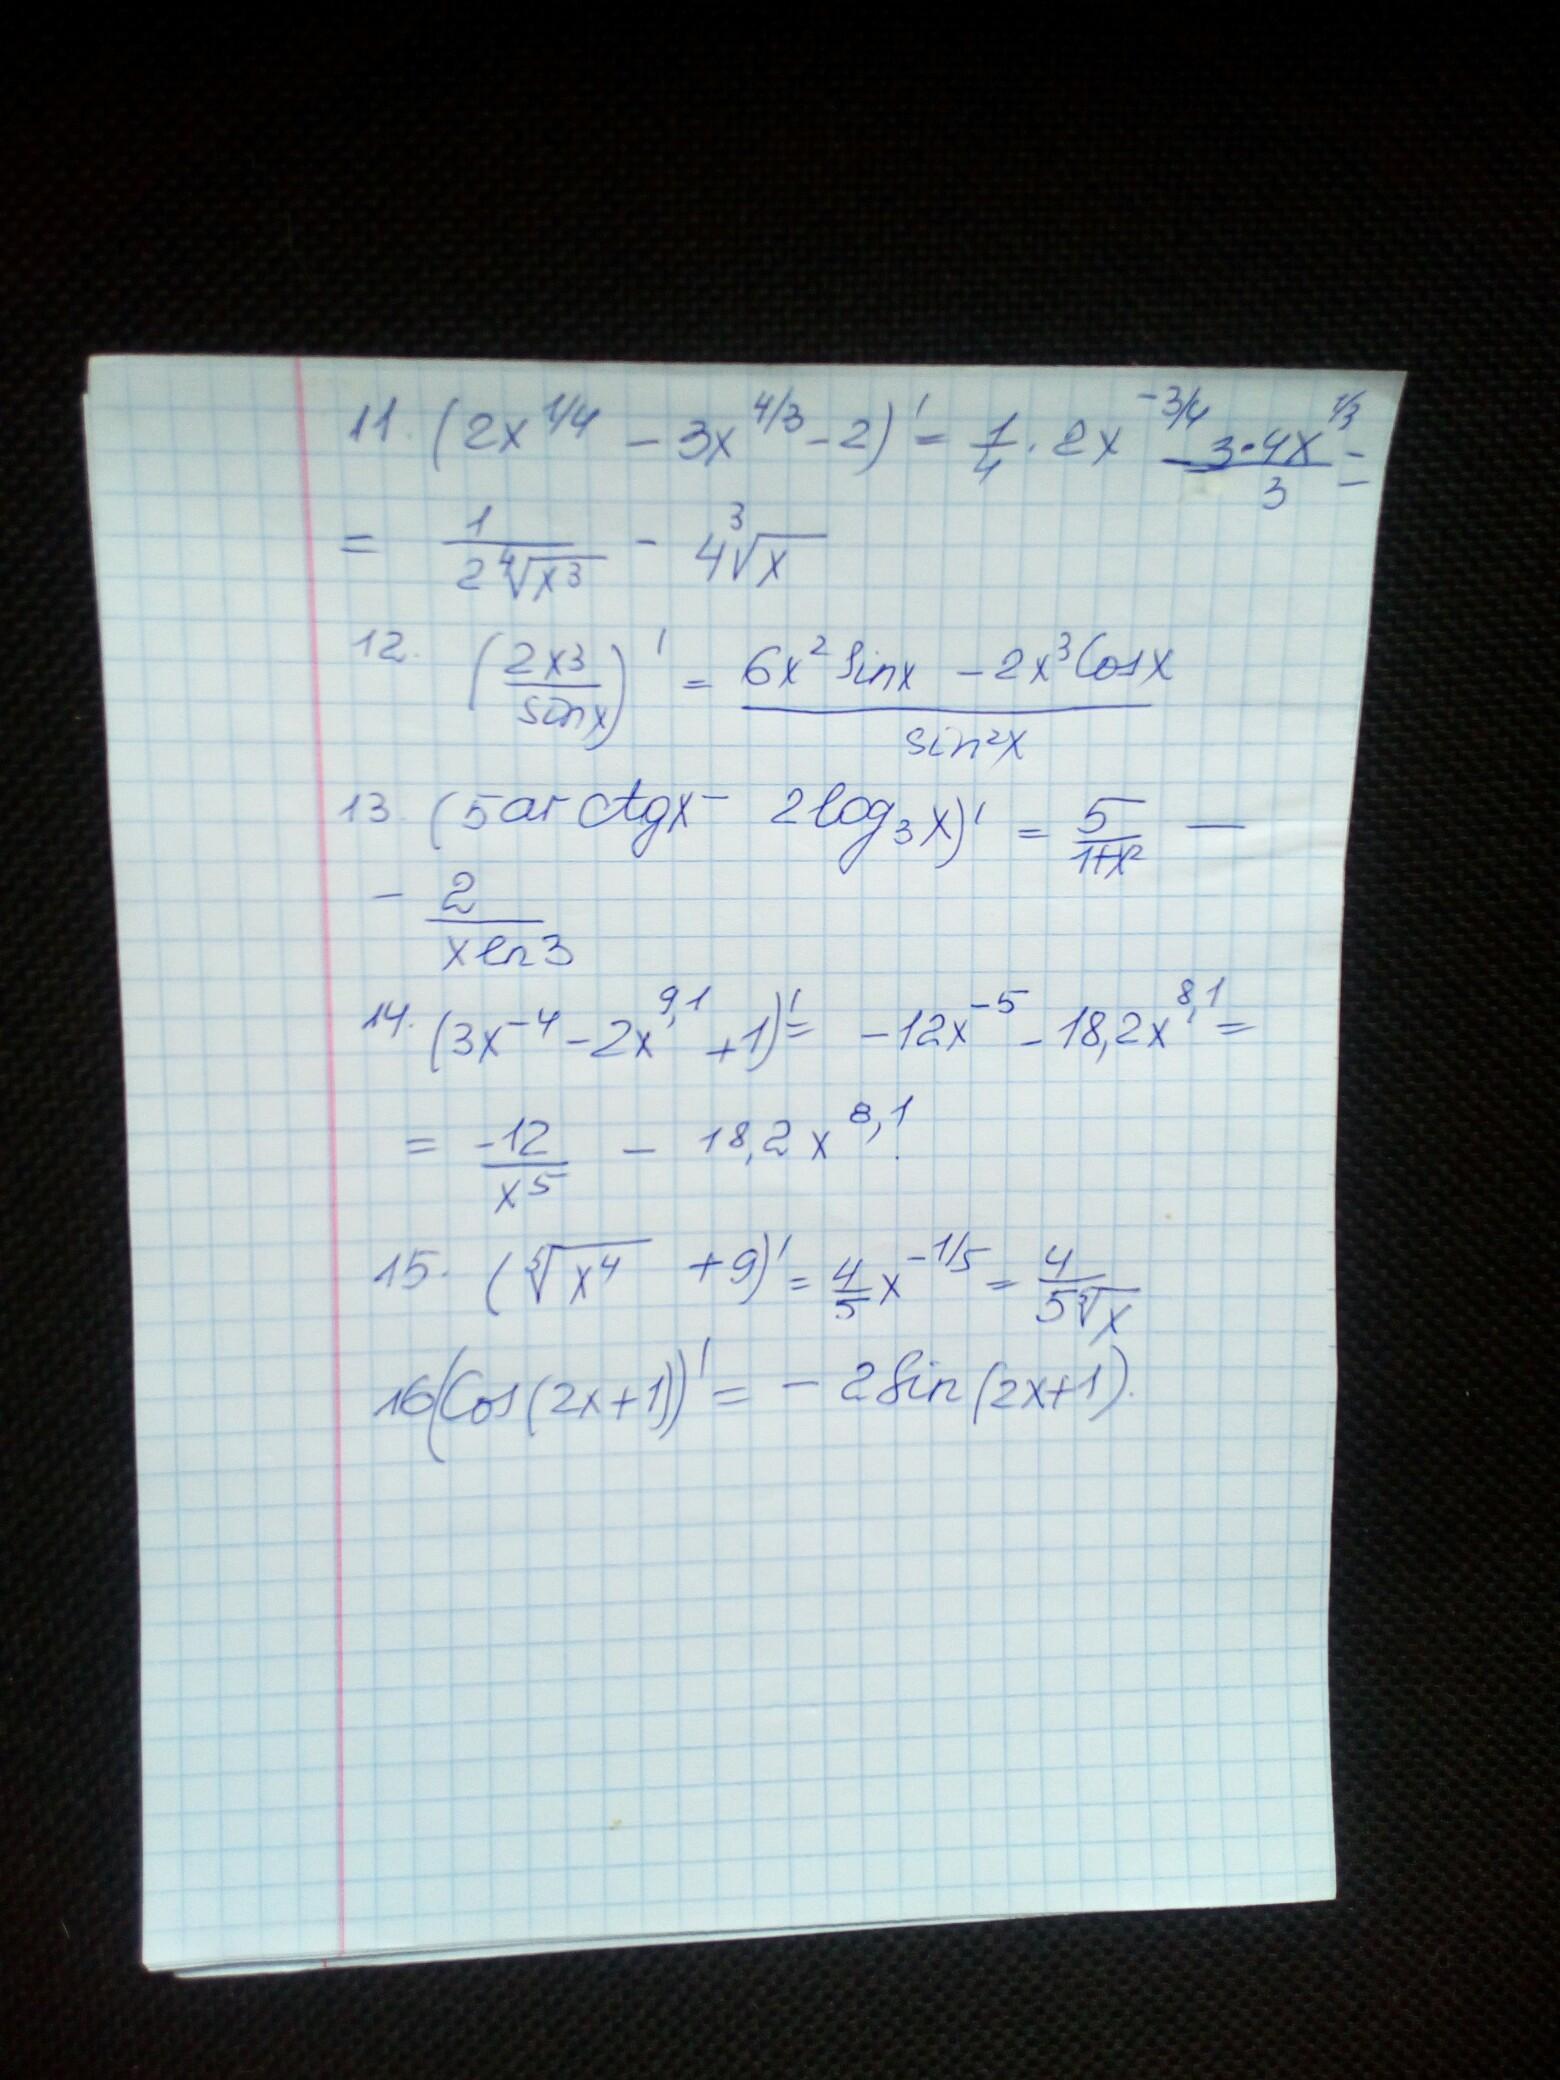 11. (2x^{1/4} - 3x^{4/3} - 2)' = \frac{1}{4} · 2x^{-3/4} - \frac{3·4x^{1/3}}{3} =
= \frac{1}{2\sqrt[4]{x^3}} - 4\sqrt[3]{x}
12. (\frac{2x^3}{sin x})' = \frac{6x^2 sin x - 2x^3 Cos x}{sin^2 x}
13. (5 arctg x - 2 log_3 x)' = \frac{5}{1+x^2} -
- \frac{2}{x ln 3}
14. (3x^{-4} - 2x^{9,1} + 1)' = -12x^{-5} - 18,2x^{8,1} =
= \frac{-12}{x^5} - 18,2x^{8,1}.
15. (\sqrt[5]{x^4} + 9)' = \frac{4}{5}x^{-1/5} = \frac{4}{5\sqrt[5]{x}}
16 (Cos(2x+1))' = - 2 Sin(2x+1).